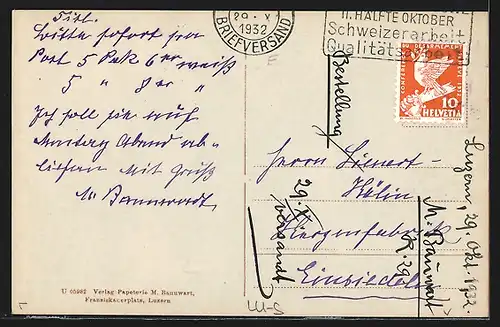 Titl.
Bitte sofort per
Post 5 Pak 6er weiß
5 " 8er "
Ich soll sie noch
Montag Abend ab-
liefern Mit Gruß
M. Bannwart
U 05982 Verlag Papeterie M. Bannwart,
Franziskanerplatz, Luzern
29. X.
1932
BRIEFVERSAND
II. HÄLFTE OKTOBER
Schweizerarbeit
Qualitätsarbeit
CONFERENCE DU DESARMEMENT
10
HELVETIA
Bestellung
Herrn Lienert-
Kälin
Kerzenfabrik
Einsiedeln
29. X.
versandt
M. Bannwart
Luzern, 29. Okt. 1932.